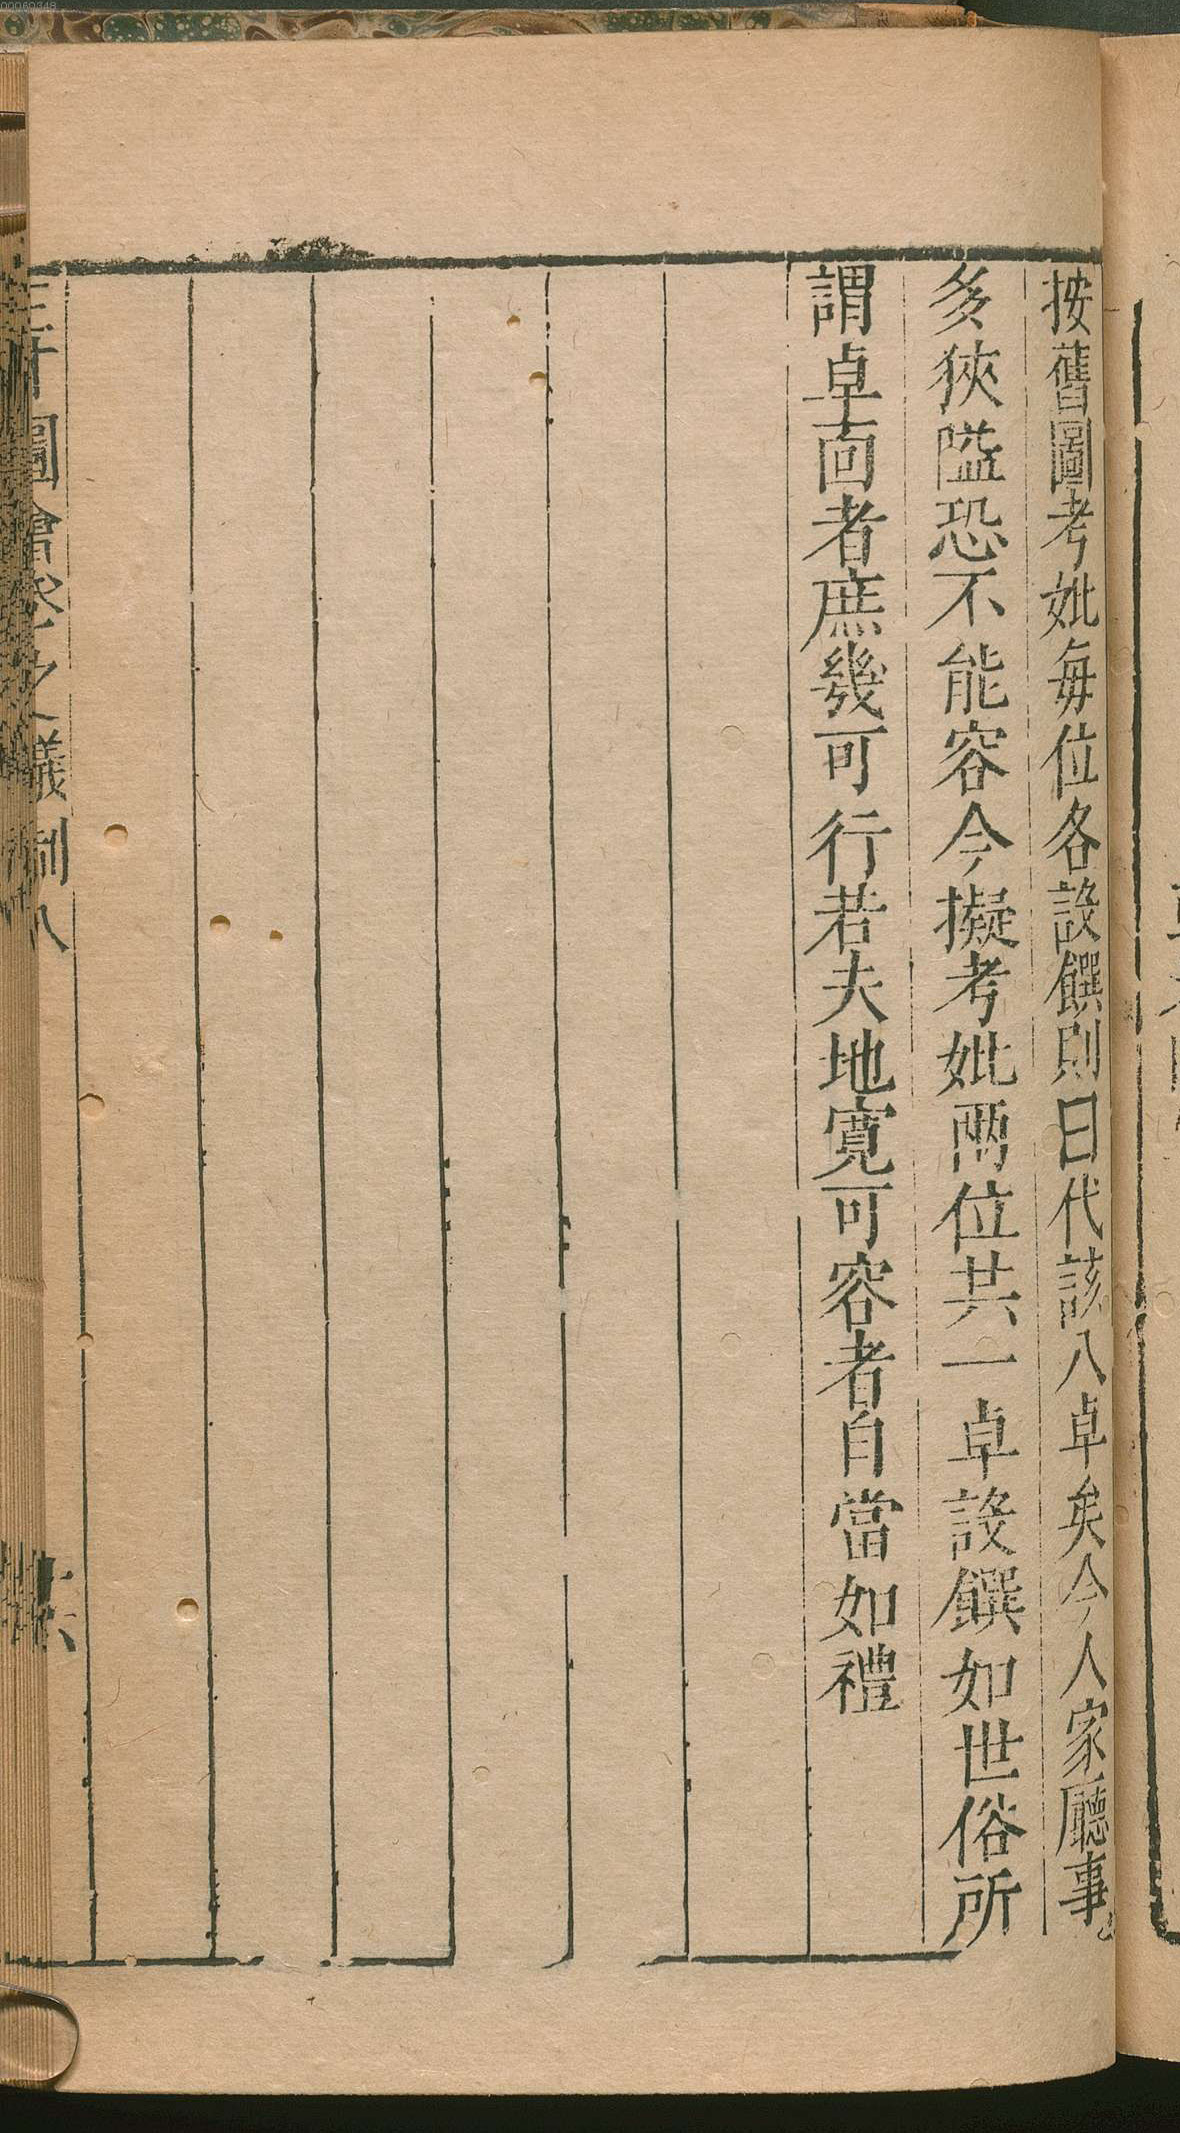 按舊圖考妣每位各設饌則曰代該八卓矣今人家廳事
多狹隘恐不能容今擬考妣兩位共一卓設饌如世俗所
謂卓面者庶幾可行若夫地寬可容者自當如禮
三才圖會卷之儀制八
十六
00060348